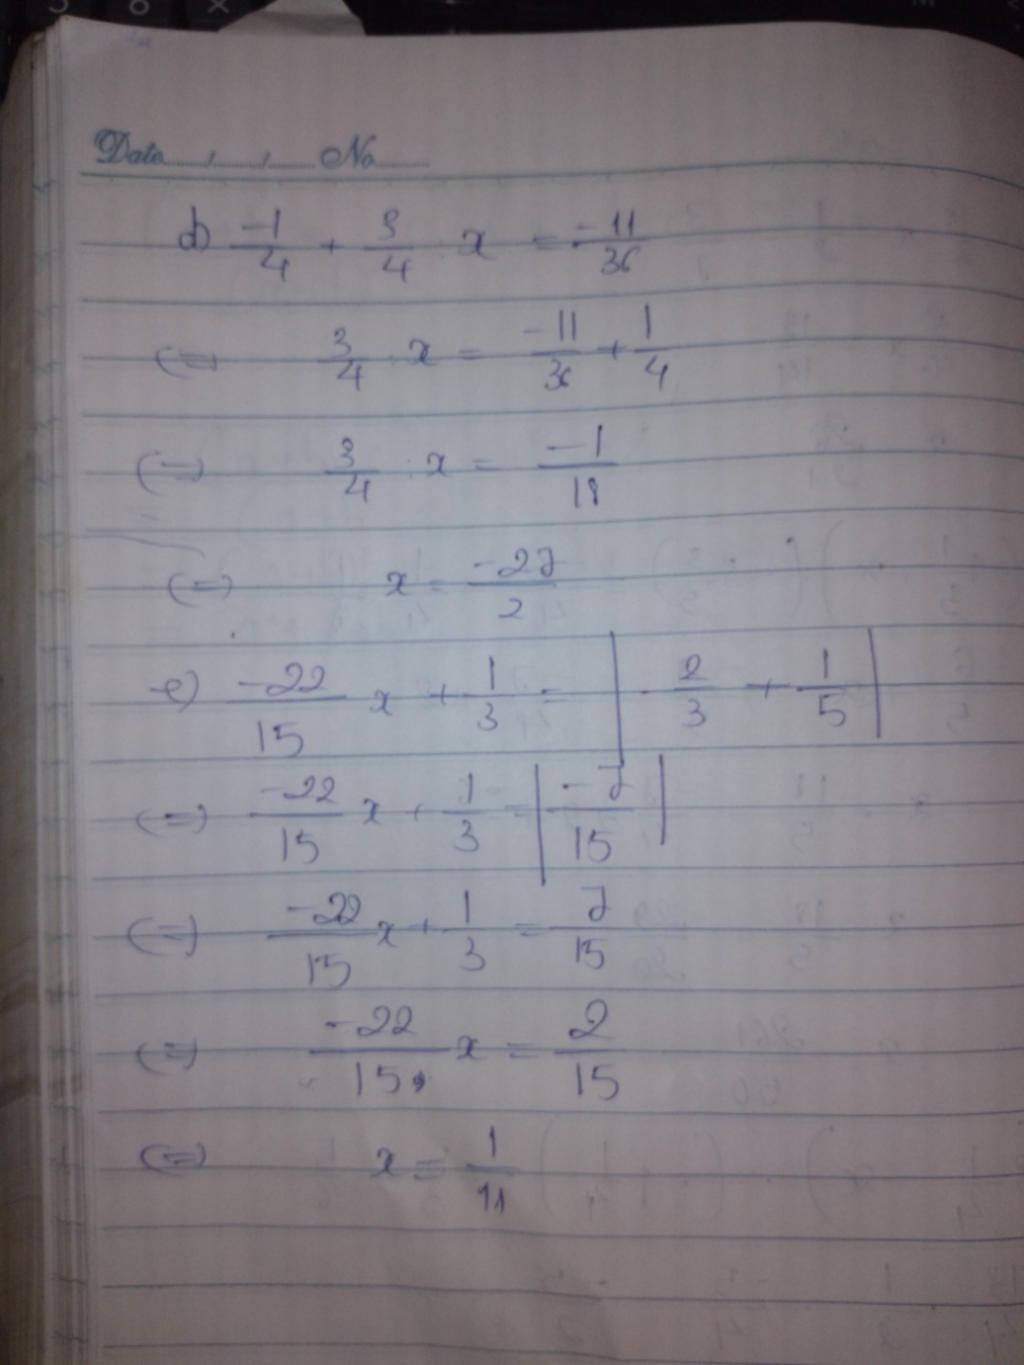 Date , , No
d) -1/4 + 3/4 . x = -11/36
(=) 3/4 . x = -11/36 + 1/4
(=) 3/4 : x = -1/18
(=) x = -27/2
e) -22/15 x + 1/3 = |-2/3 + 1/5|
(=) -22/15 x + 1/3 = |-7/15|
(=) -22/15 x + 1/3 = 7/15
(=) -22/15 x = 2/15
(=) x = 1/11